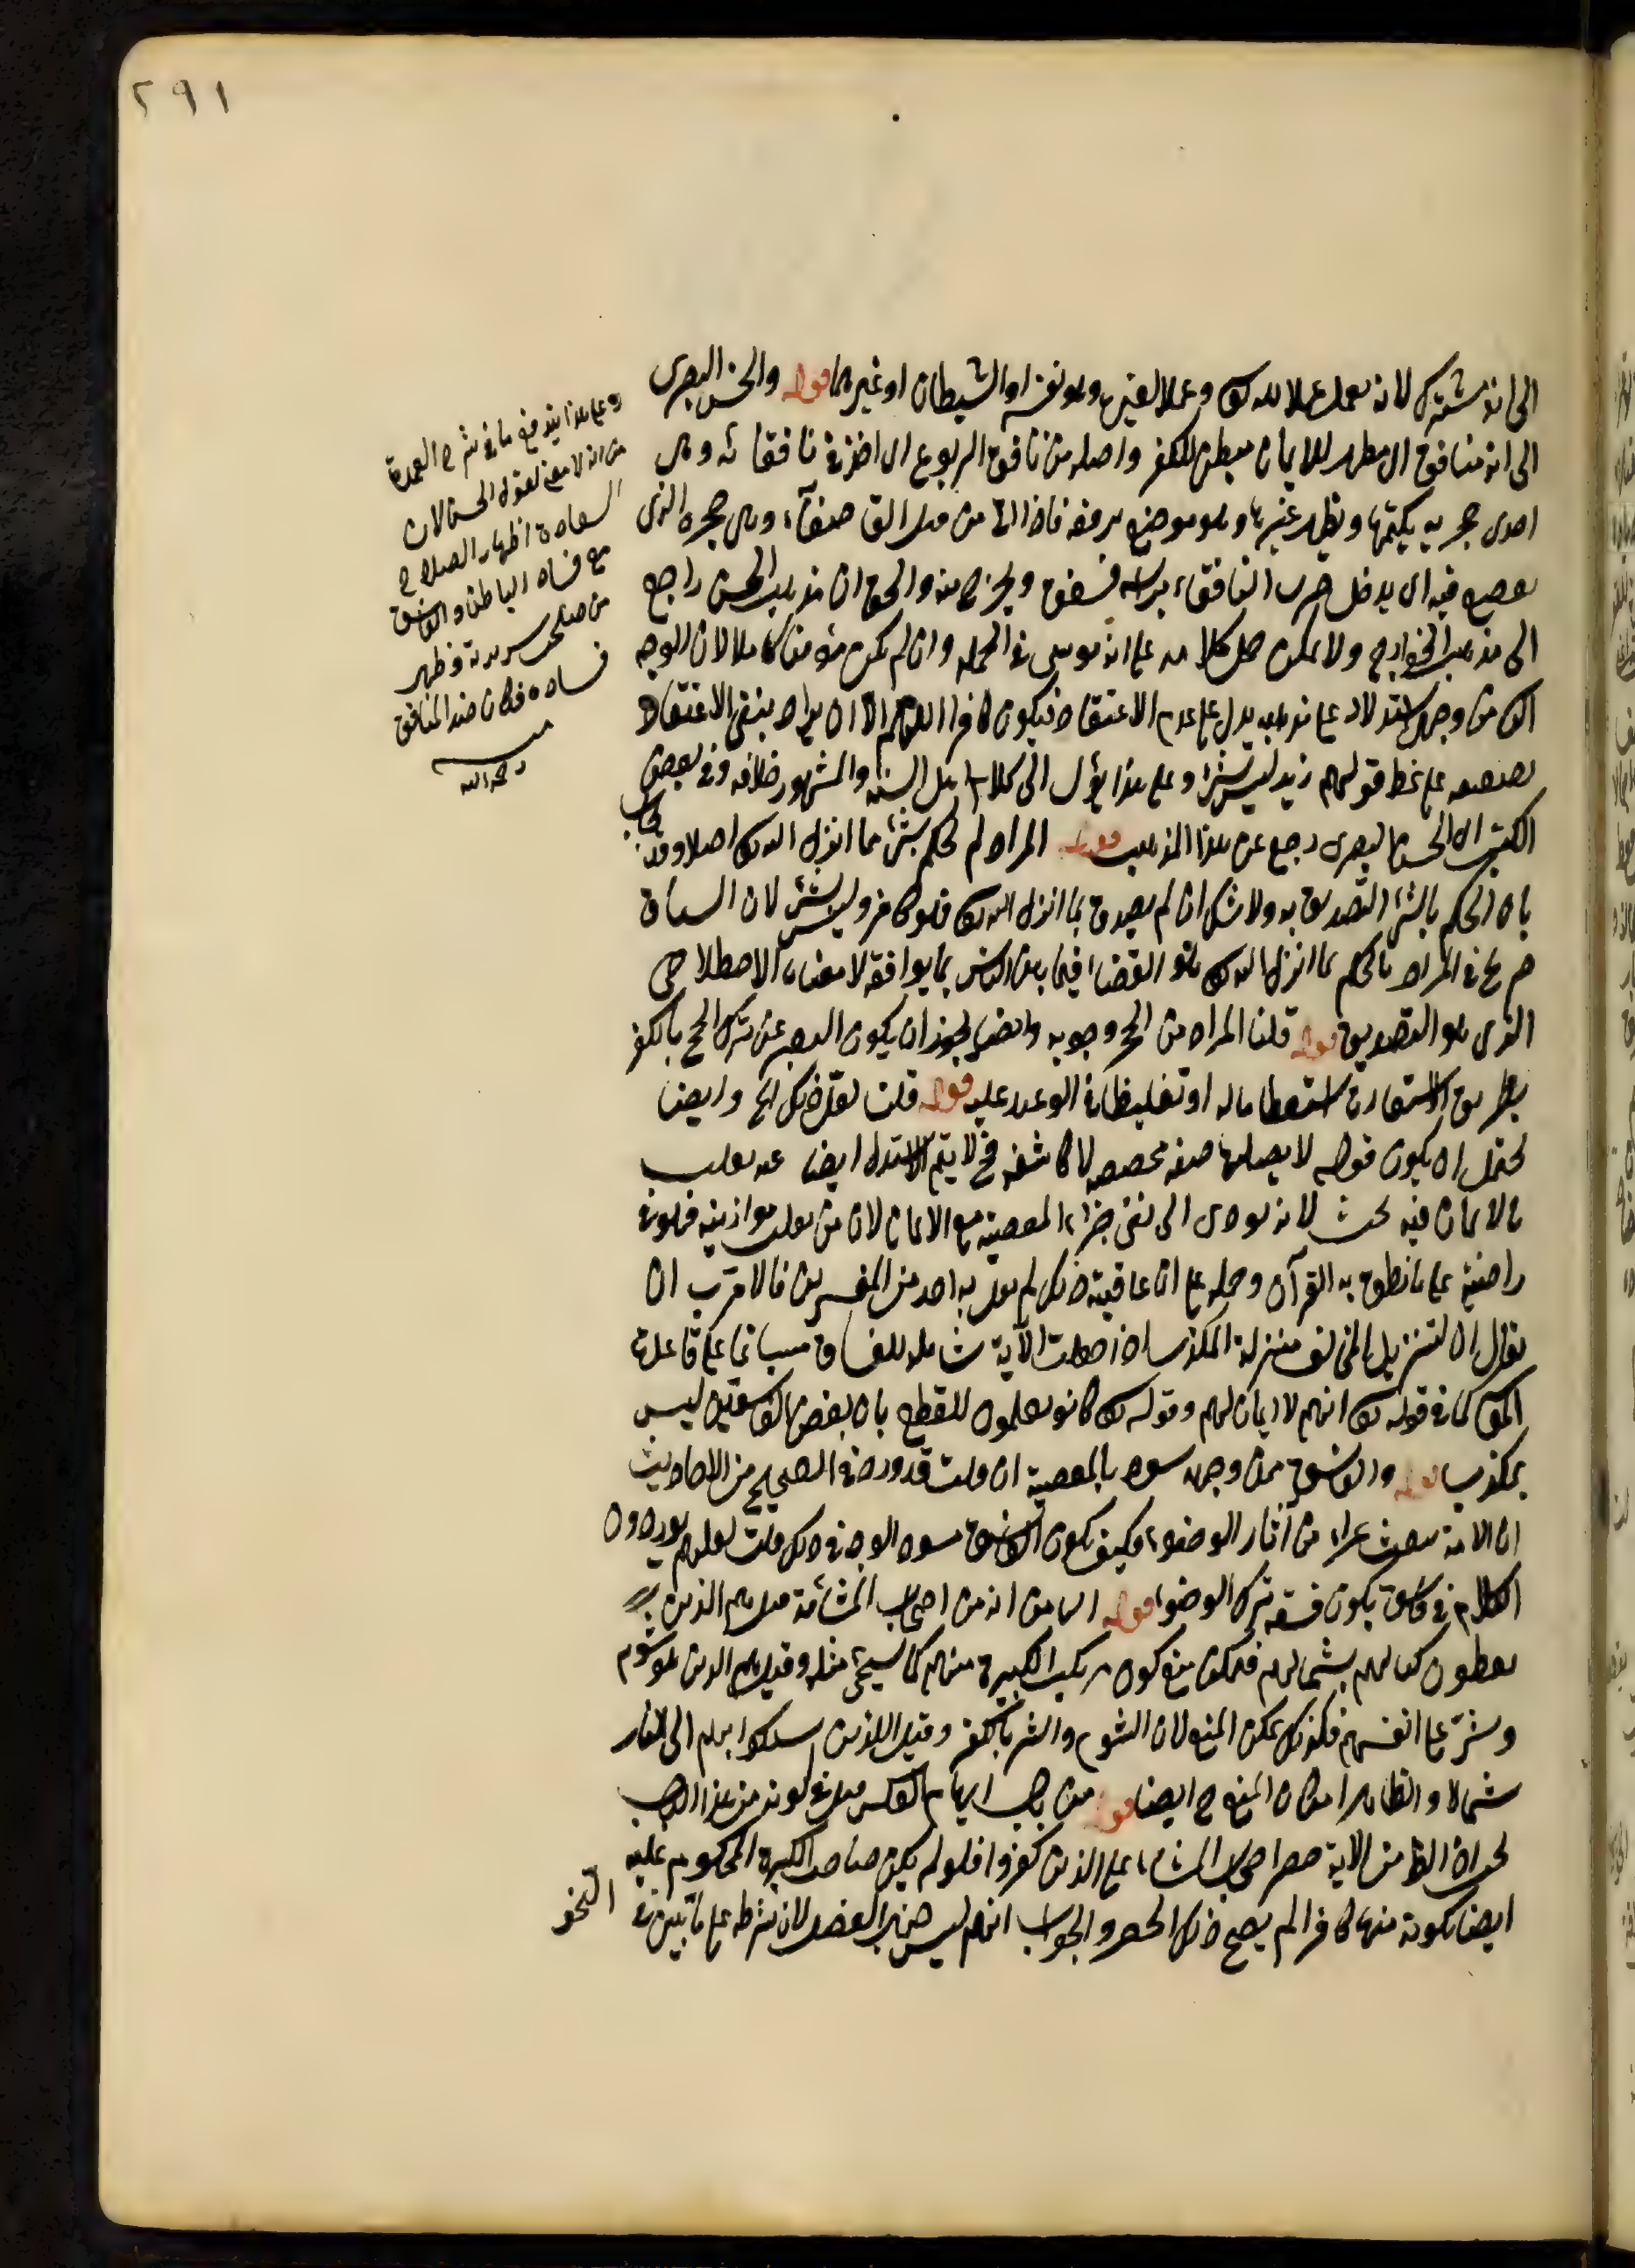 ٢٩١
الى انه مشترك لانه يعمل عملا لله تعالى وعملا لغيره وهو نفسه او الشيطان او غيرهما قوله والحسن البصرى
الى انه منافق اى مظهر للايمان مبطن للكفر واصله من نافق اليربوع اى اخذ فى نافقائه وهى
احدى جحريه يكتمها ويظهر غيرها وهو موضع يرققه فاذا اتى من قبل القاصعاء وهى جحره الذى
يقصع فيه اى يدخل ضرب النافقاء برأسه فينفق ويخرج منه والحق ان مذهب الحسن راجع
الى مذهب الخوارج ولا يمكن حمل كلامه على انه مؤمن فى الجملة وان لم يكن مؤمنا كاملا لان الوجه
الثانى من وجهى استدلاله على مذهبه يدل على عدم الاعتقاد فيكون كافرا اللهم الا ان يراد بنفى الاعتقاد
على نمط قولهم زيد ليس بشئ وعلى هذا يؤل الى كلام اهل السنة والمشهور خلافه وفى بعض
الكتب ان الحسن البصرى رجع عن هذا المذهب قوله المراد لم يحكم بشئ مما انزل الله تعالى اصلا وقد يجاب
بان الحكم بالشئ التصديق به ولا شك ان لم يصدق بما انزل الله تعالى فهو كافر وليس بشئ لان السياق
صريح فى المراد بالحكم بما انزل الله تعالى هو القضاء فيما بين الناس بما يوافقه لا معناه الاصطلاحى
الذى هو التصديق قوله قلنا المراد من الحج وجوبه وايضا يجوز ان يكون التعبير عن ترك الحج بالكفر
بطريق الاستعارة استعظاما له او تغليظا فى الوعيد عليه قوله قلت لعل ذلك الخ وايضا
يحتمل ان يكون قوله لا يصلاها صفة مخصصة لا كاشفة فح لا يتم الاستدلال ايضا
بالايمان فيه بحث لانه يؤدى الى نفى جزاء المعصية مع الايمان لان من ثقلت موازينه فهو فى
راضية على ما نطق به القرآن وحمله على ان عاقبة ذلك لم يقل به احد من المفسرين فالاقرب ان
يقال ان لتنزيل المخالف منزلة المكذب اذ جعلت الآية شاملة للفساق على قاعدة
كما فى قوله تعالى انهم لا ايمان لهم وقوله تعالى كانوا يعلمون للقطع بان بعض الفاسقين ليس
بمكذب قوله والفاسق ممن وجهه يسود بالمعصية ان قلت قد ورد فى الصحيح من الاحاديث
ان الامة يبعث غراء من آثار الوضوء فكيف يكون الفاسق مسود الوجه فى ذلك قلت لعلهم يوردون
الكلام فى فاسق يكون فسقه بترك الوضوء قوله الثامن انه من اصحاب المشأمة قيل هم الذين
يعطون كتابهم بشمالهم فيمكن منع كون مرتكب الكبيرة منهم كما سيجئ مثله وقيل هم الذين هم شوم
وشر على انفسهم فكذلك يمكن المنع لان الشوم والشر بالكفر وقيل الذين يسلك بهم الى النار
شمالا والظاهر امكان المنع ح ايضا قوله من باب ايهام العكس قيل فى كونه من هذا الباب
بحث اذ الظ من الاية حصر اصحاب المشأمة على الذين كفروا فلو لم يكن صاحب الكبيرة المحكوم عليه
ايضا بكونه منهم كافرا لم يصح ذلك الحصر والجواب انهم ليس ضمير الفصل لان شرطه على ما تبين فى
النحو
وعلى هذا يندفع ما فى شرح العمدة
من انه لا معنى لقول الحسن لان
السعادة اظهار الصلاح
مع فساد الباطن والفاسق
من صلحت سريرته وظهر
فساده فكان ضد المنافق
منه
رحمه الله